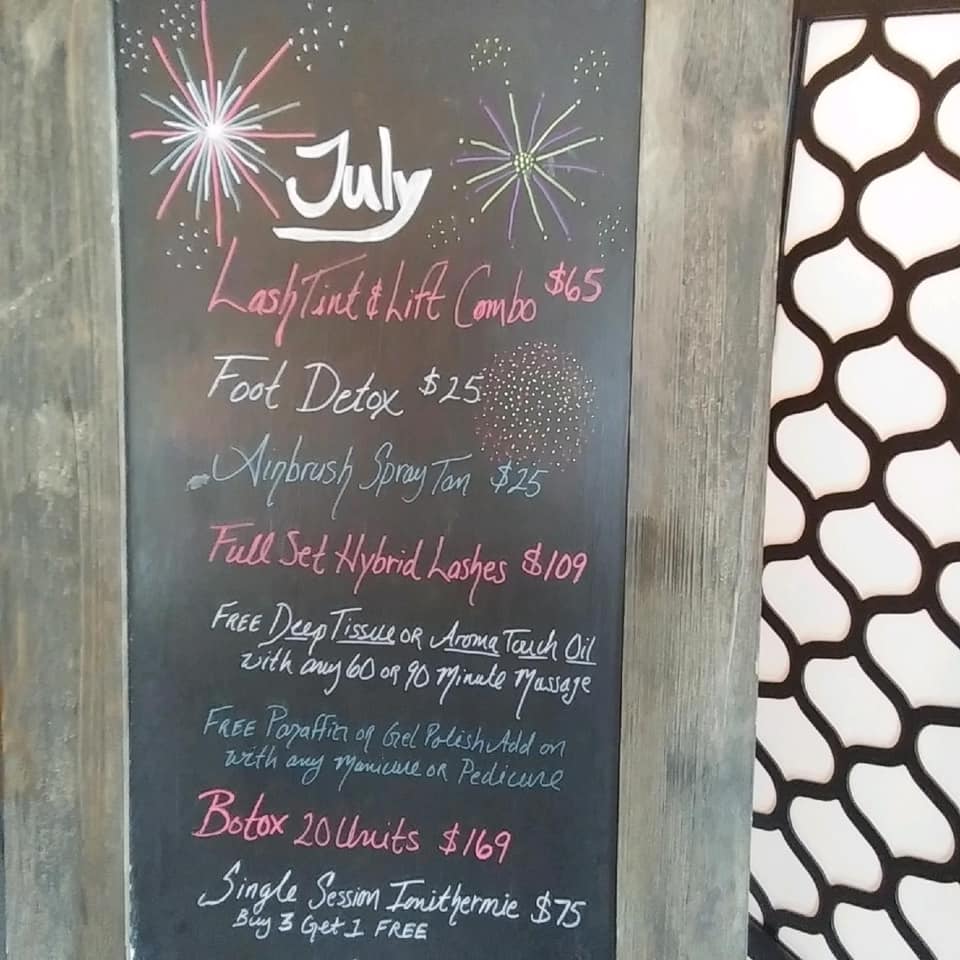 July
Lash Tint & Lift Combo $65
Foot Detox $25
Airbrush Spray Tan $25
Full Set Hybrid Lashes $109
FREE Deep Tissue OR Aroma Touch Oil
with any 60 or 90 Minute Massage
FREE Paraffin or Gel Polish Add on
with any Manicure OR Pedicure
Botox 20 Units $169
Single Session Ionithermie $75
Buy 3 Get 1 FREE